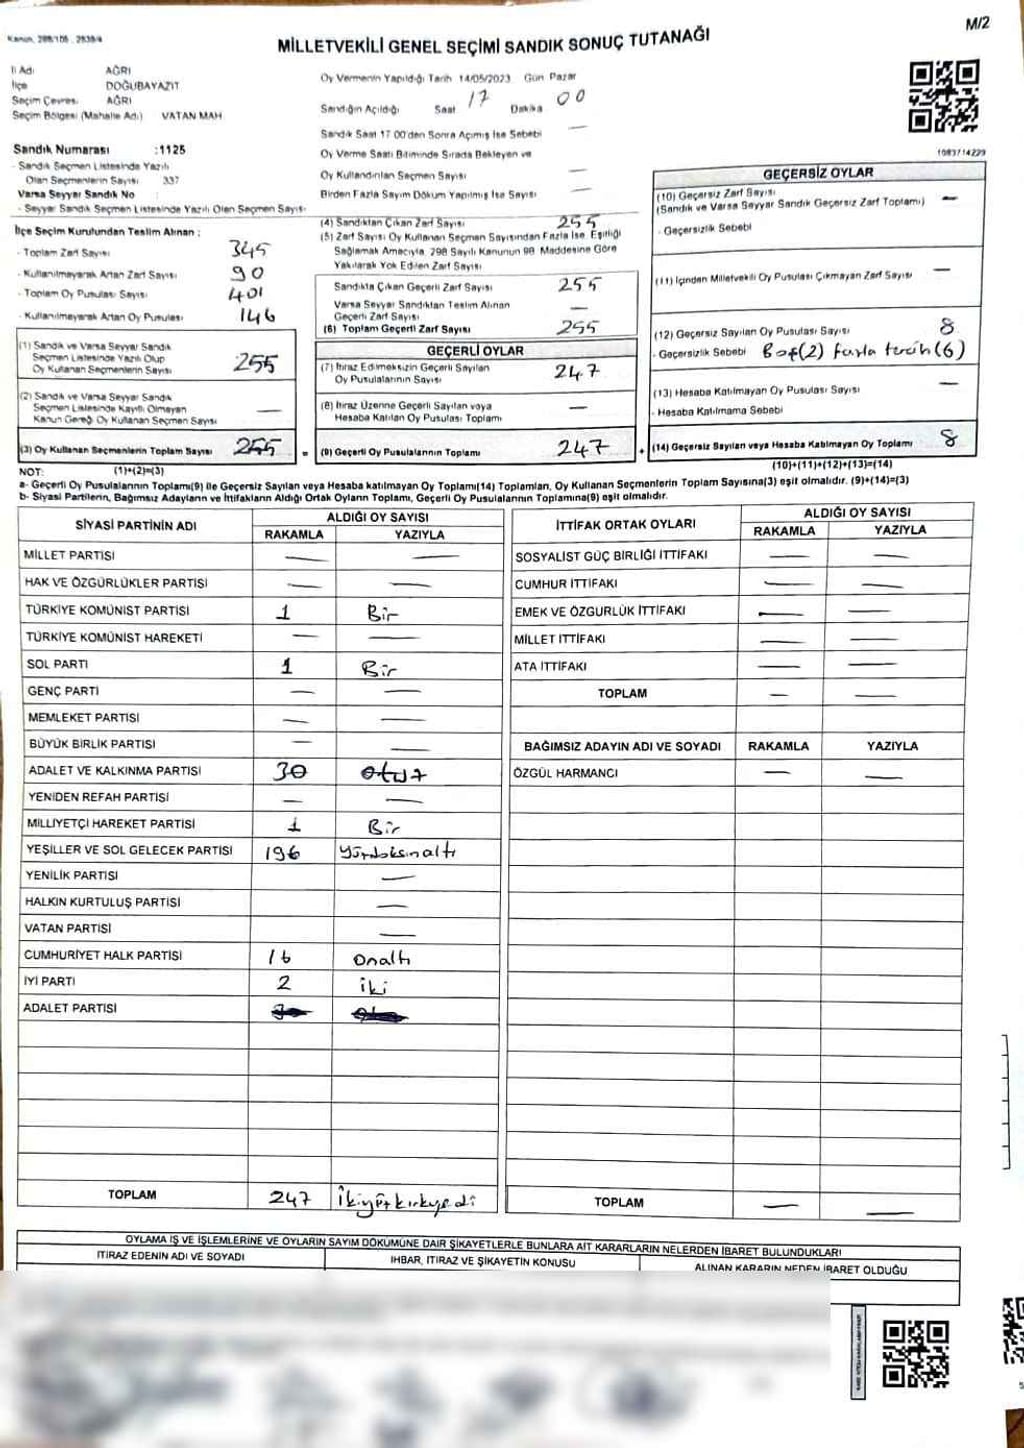 M/2
Kanun, 298/105 , 2839/4
MİLLETVEKİLİ GENEL SEÇİMİ SANDIK SONUÇ TUTANAĞI
İl Adı AĞRI
İlçe DOĞUBAYAZIT
Seçim Çevresi AĞRI
Seçim Bölgesi (Mahalle Adı) VATAN MAH.
Sandık Numarası :1125
- Sandık Seçmen Listesinde Yazılı
Olan Seçmenlerin Sayısı 337
Varsa Seyyar Sandık No
- Seyyar Sandık Seçmen Listesinde Yazılı Olan Seçmen Sayısı
İlçe Seçim Kurulundan Teslim Alınan :
- Toplam Zarf Sayısı 345
- Kullanılmayarak Artan Zarf Sayısı 90
- Toplam Oy Pusulası Sayısı 401
- Kullanılmayarak Artan Oy Pusulası 146
(1) Sandık ve Varsa Seyyar Sandık
Seçmen Listesinde Yazılı Olup
Oy Kullanan Seçmenlerin Sayısı 255
(2) Sandık ve Varsa Seyyar Sandık
Seçmen Listesinde Kayıtlı Olmayan
Kanun Gereği Oy Kullanan Seçmen Sayısı —
(3) Oy Kullanan Seçmenlerin Toplam Sayısı 255
Oy Vermenin Yapıldığı Tarih 14/05/2023 Gün Pazar
Sandığın Açıldığı Saat 17 Dakika 00
Sandık Saat 17.00'den Sonra Açılmış İse Sebebi —
Oy Verme Saati Bitiminde Sırada Bekleyen ve
Oy Kullandırılan Seçmen Sayısı —
Birden Fazla Sayım Döküm Yapılmış İse Sayısı —
(4) Sandıktan Çıkan Zarf Sayısı 255
(5) Zarf Sayısı Oy Kullanan Seçmen Sayısından Fazla İse, Eşitliği
Sağlamak Amacıyla, 298 Sayılı Kanunun 98. Maddesine Göre
Yakılarak Yok Edilen Zarf Sayısı
Sandıkta Çıkan Geçerli Zarf Sayısı 255
Varsa Seyyar Sandıktan Teslim Alınan
Geçerli Zarf Sayısı —
(6) Toplam Geçerli Zarf Sayısı 255
GEÇERLİ OYLAR
(7) İtiraz Edilmeksizin Geçerli Sayılan
Oy Pusulalarının Sayısı 247
(8) İtiraz Üzerine Geçerli Sayılan veya
Hesaba Katılan Oy Pusulası Toplamı —
= (9) Geçerli Oy Pusulalarının Toplamı 247
1083714229
GEÇERSİZ OYLAR
(10) Geçersiz Zarf Sayısı —
(Sandık ve Varsa Seyyar Sandık Geçersiz Zarf Toplamı)
- Geçersizlik Sebebi
(11) İçinden Milletvekili Oy Pusulası Çıkmayan Zarf Sayısı —
(12) Geçersiz Sayılan Oy Pusulası Sayısı 8
- Geçersizlik Sebebi Boş(2) fazla tercih(6)
(13) Hesaba Katılmayan Oy Pusulası Sayısı —
- Hesaba Katılmama Sebebi
+ (14) Geçersiz Sayılan veya Hesaba Katılmayan Oy Toplamı 8
NOT: (1)+(2)=(3) (10)+(11)+(12)+(13)=(14)
a- Geçerli Oy Pusulalarının Toplamı(9) ile Geçersiz Sayılan veya Hesaba katılmayan Oy Toplamı(14) Toplamları, Oy Kullanan Seçmenlerin Toplam Sayısına(3) eşit olmalıdır. (9)+(14)=(3)
b- Siyasi Partilerin, Bağımsız Adayların ve İttifakların Aldığı Ortak Oyların Toplamı, Geçerli Oy Pusulalarının Toplamına(9) eşit olmalıdır.
SİYASİ PARTİNİN ADI ALDIĞI OY SAYISI
RAKAMLA YAZIYLA
MİLLET PARTİSİ — —
HAK VE ÖZGÜRLÜKLER PARTİSİ — —
TÜRKİYE KOMÜNİST PARTİSİ 1 Bir
TÜRKİYE KOMÜNİST HAREKETİ — —
SOL PARTİ 1 Bir
GENÇ PARTİ — —
MEMLEKET PARTİSİ — —
BÜYÜK BİRLİK PARTİSİ — —
ADALET VE KALKINMA PARTİSİ 30 otuz
YENİDEN REFAH PARTİSİ — —
MİLLİYETÇİ HAREKET PARTİSİ 1 Bir
YEŞİLLER VE SOL GELECEK PARTİSİ 196 yüzdoksanaltı
YENİLİK PARTİSİ —
HALKIN KURTULUŞ PARTİSİ —
VATAN PARTİSİ —
CUMHURİYET HALK PARTİSİ 16 Onaltı
İYİ PARTİ 2 iki
ADALET PARTİSİ
TOPLAM 247 ikiyüzkırkyedi
İTTİFAK ORTAK OYLARI ALDIĞI OY SAYISI
RAKAMLA YAZIYLA
SOSYALİST GÜÇ BİRLİĞİ İTTİFAKI — —
CUMHUR İTTİFAKI — —
EMEK VE ÖZGÜRLÜK İTTİFAKI — —
MİLLET İTTİFAKI — —
ATA İTTİFAKI — —
TOPLAM — —
BAĞIMSIZ ADAYIN ADI VE SOYADI RAKAMLA YAZIYLA
ÖZGÜL HARMANCI — —
TOPLAM — —
OYLAMA İŞ VE İŞLEMLERİNE VE OYLARIN SAYIM DÖKÜMÜNE DAİR ŞİKAYETLERLE BUNLARA AİT KARARLARIN NELERDEN İBARET BULUNDUKLARI
İTİRAZ EDENİN ADI VE SOYADI İHBAR, İTİRAZ VE ŞİKAYETİN KONUSU ALINAN KARARIN NEDEN İBARET OLDUĞU